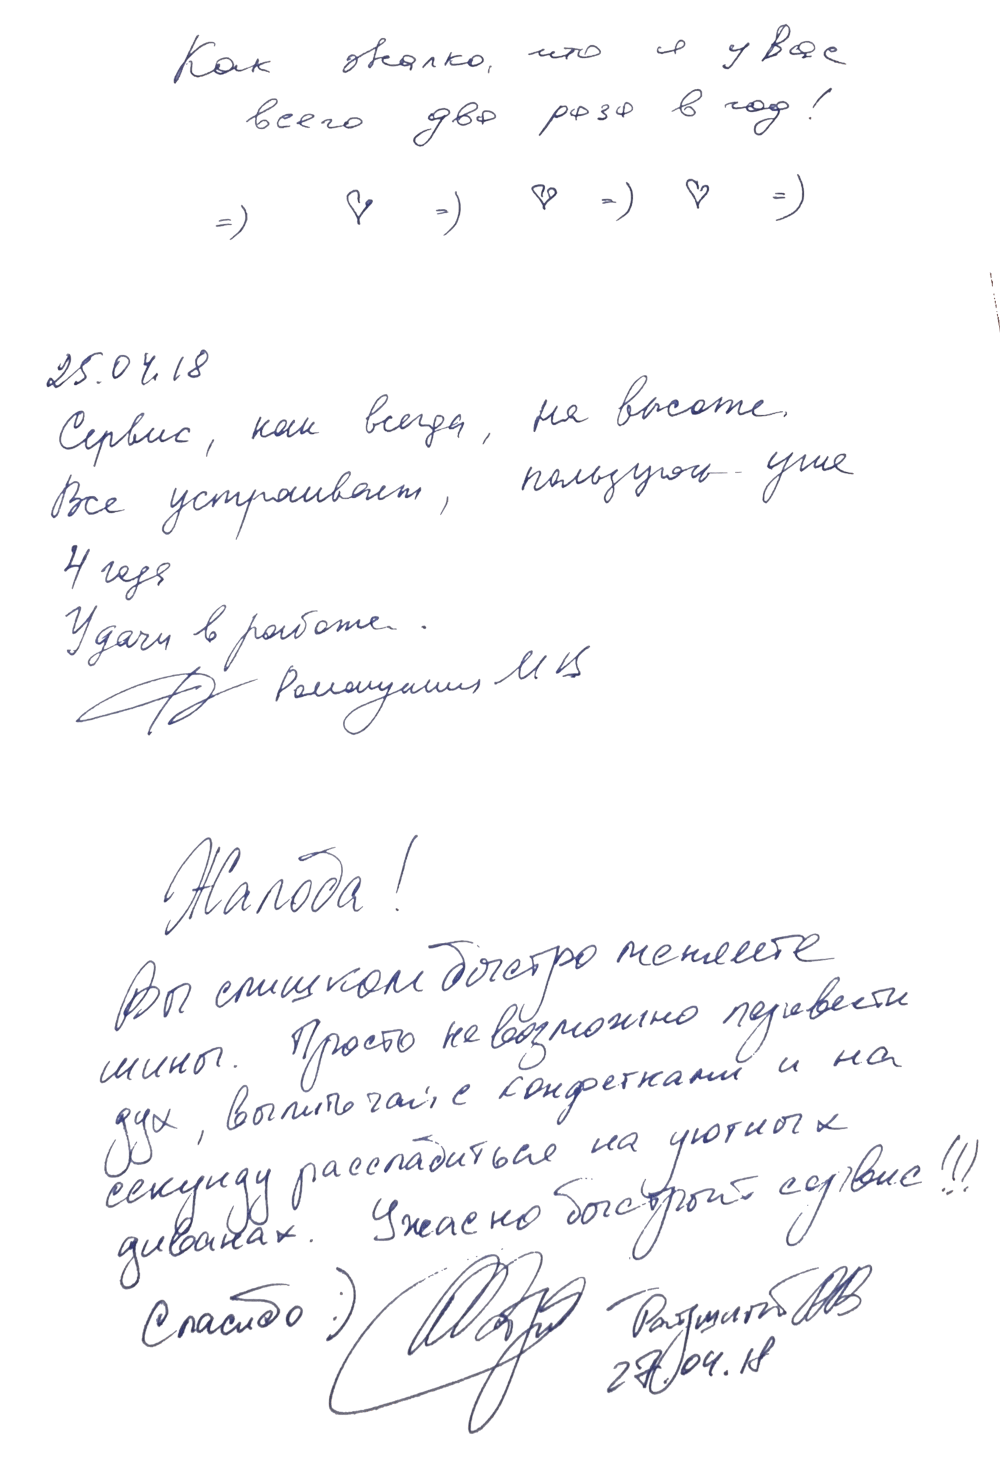 Как жалко, что я у Вас
всего два раза в год!
=) ♡ =) ♡ =) ♡ =)
25.04.18
Сервис, как всегда, на высоте.
Все устраивает, пользуюсь уже
4 года
Удачи в работе.
М В
Жалоба!
Вы слишком быстро меняете
шины. Просто невозможно перевести
дух, выпить чай с конфетками и на
секунду расслабиться на уютных
диванах. Ужасно быстрый сервис!!!
Спасибо :)
27.04.18